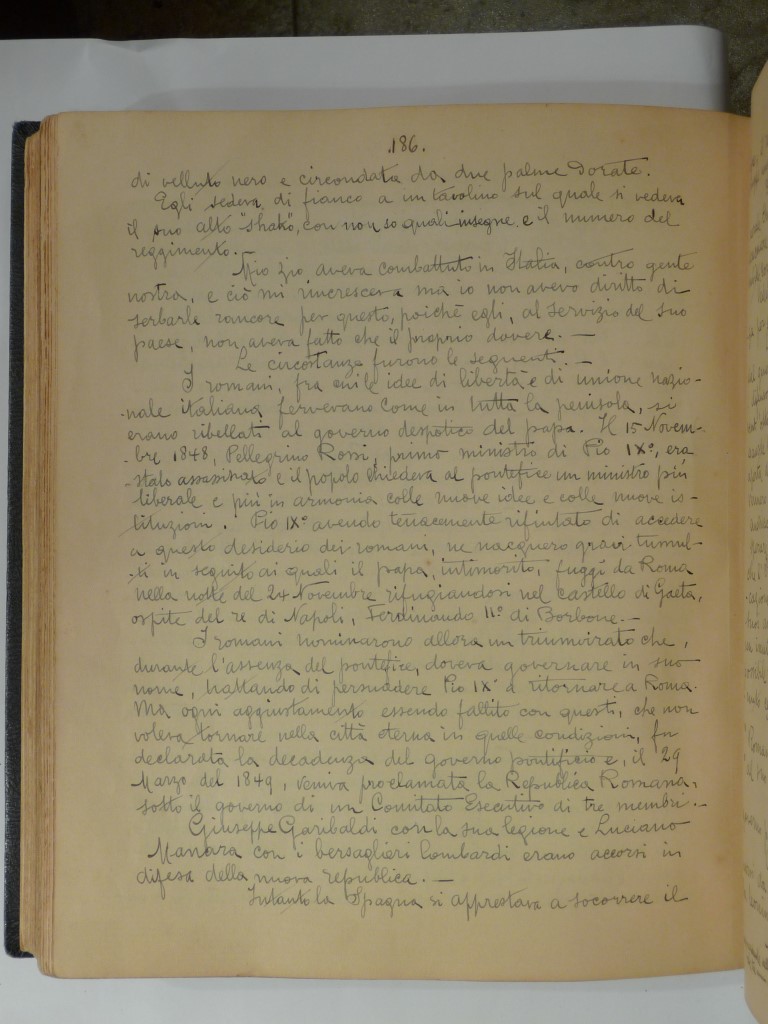 .186.
di velluto nero e circondata da due palme dorate.
Egli sedeva, di fianco a un tavolino sul quale si vedeva
il suo alto "shako", con non so quali insegne e il numero del
reggimento. —
Mio zio aveva combattuto in Italia, contro gente
nostra, e ciò mi rincresceva ma io non avevo diritto di
serbarle rancore per questo, poichè egli, al servizio del suo
paese, non aveva fatto che il proprio dovere. —
Le circostanze furono le seguenti. —
I romani, fra cui le idee di libertà e di unione nazio-
-nale italiana fervevano come in tutta la penisola, si
erano ribellati al governo despotico del papa. Il 15 Novem-
-bre 1848, Pellegrino Rossi, primo ministro di Pio IXº, era
stato assassinato e il popolo chiedeva al pontefice un ministro più
liberale e più in armonia colle nuove idee e colle nuove is-
tituzioni. Pio IXº avendo tenacemente rifiutato di accedere
a questo desiderio dei romani, ne nacquero gravi tumul-
-ti in seguito ai quali il papa, intimorito, fuggì da Roma
nella notte del 24 Novembre rifugiandosi nel castello di Gaeta,
ospite del re di Napoli, Ferdinando IIº di Borbone. —
I romani nominarono allora un triumvirato che,
durante l'assenza del pontefice, doveva governare in suo
nome, trattando di persuadere Pio IXº a ritornare a Roma.
Ma ogni aggiustamento essendo fallito con questi, che non
voleva tornare nella città eterna in quelle condizioni, fu
declarata la decadenza del governo pontificio e, il 29
Marzo del 1849, veniva proclamata la Repubblica Romana,
sotto il governo di un Comitato Esecutivo di tre membri. —
Giuseppe Garibaldi con la sua legione e Luciano
Manara con i bersaglieri lombardi erano accorsi in
difesa della nuova repubblica. —
Intanto la Spagna si apprestava a soccorrere il